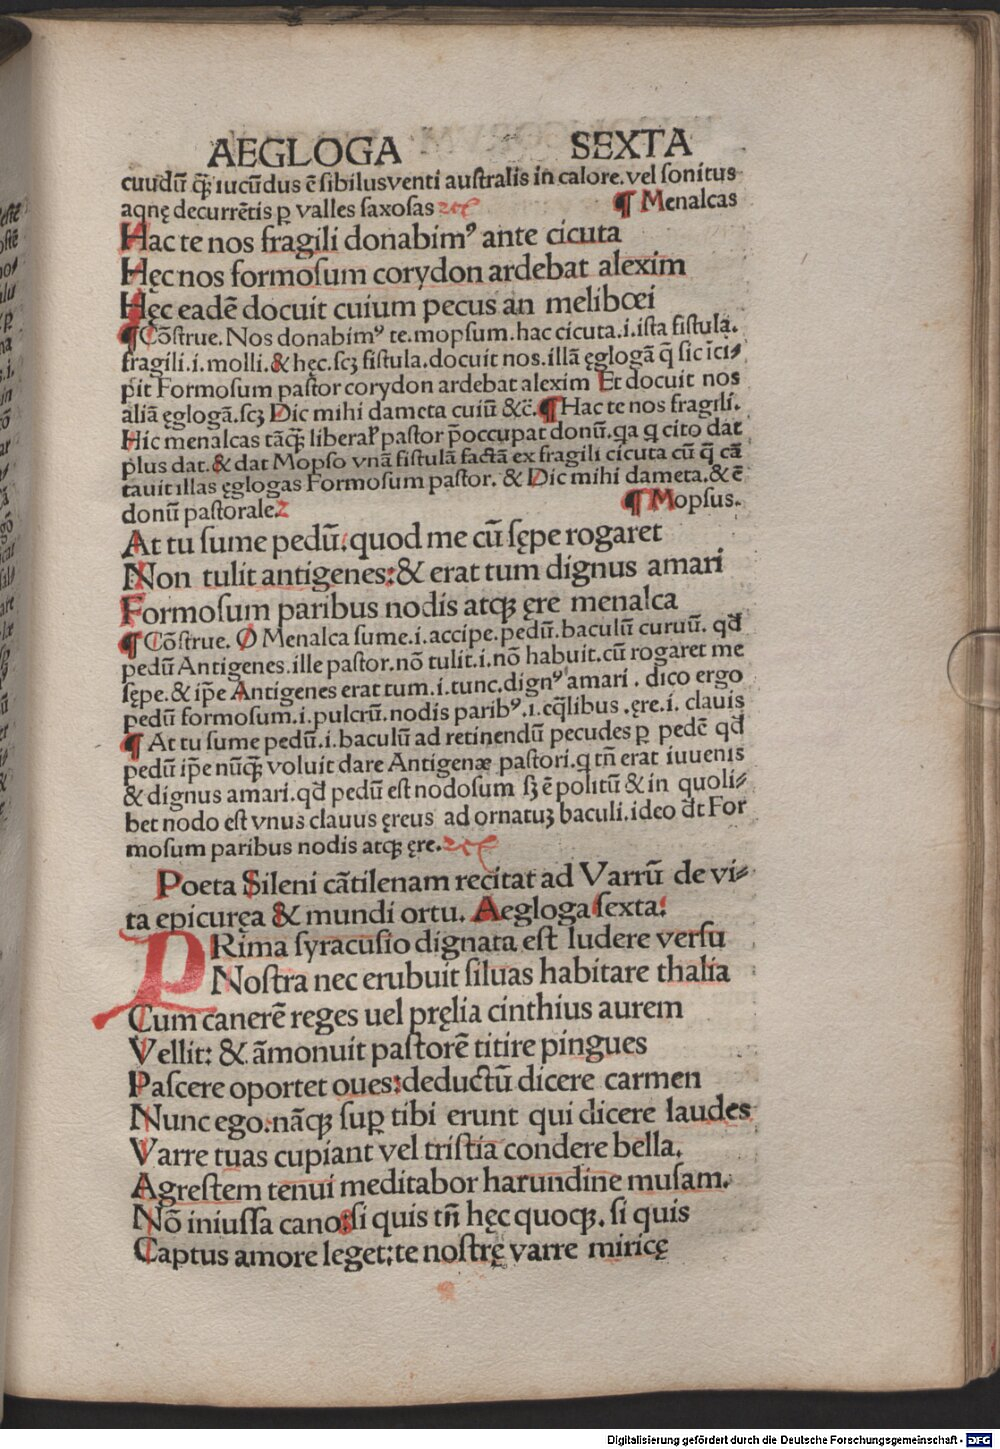 AEGLOGA SEXTA
cuudū q̄ꝫ iucūdus ē sibilusventi australis in calore.vel sonitus
aqnę decurrētis ꝑ valles saxosas ¶ Menalcas
Hac te nos fragili donabimꝰ ante cicuta
Hęc nos formosum corydon ardebat alexim
Hęc eadē docuit cuium pecus an melibœi
¶ Cōstrue. Nos donabimꝰ te.mopsum.hac cicuta.i.ista fistula.
fragili.i.molli.& hęc.scꝫ fistula.docuit nos.illā ęglogā q̄ sic ici⸗
pit Formosum pastor corydon ardebat alexim Et docuit nos
aliā ęglogā.scꝫ Dic mihi dameta cuiū &c̄. ¶ Hac te nos fragili.
Hic menalcas tāqꝫ liberaľ pastor p̄occupat donū.qa q cito dat
plus dat.& dat Mopso vnā fistulā factā ex fragili cicuta cū q̄ cā
tauit illas ęglogas Formosum pastor. & Dic mihi dameta.& ē
donū pastorale ¶ Mopsus.
At tu sume pedū:quod me cū sępe rogaret
Non tulit antigenes:& erat tum dignus amari
Formosum paribus nodis atqꝫ ęre menalca
¶ Cōstrue. O Menalca sume.i.accipe.pedū.baculū curuū. qđ
pedū Antigenes.ille pastor.nō tulit.i.nō habuit.cū rogaret me
sępe.& ip̄e Antigenes erat tum.i.tunc.dignꝰ amari . dico ergo
pedū formosum.i.pulcrū.nodis paribꝰ.i.eq̄libus .ęre.i. clauis
¶ At tu sume pedū.i.baculū ad retinendū pecudes ꝑ pedē qđ
pedū ip̄e nūqꝫ voluit dare Antigenæ pastori.q tn̄ erat iuuenis
& dignus amari.qđ pedū est nodosum sꝫ ē politū & in quoli⸗
bet nodo est vnus clauus ęreus ad ornatuꝫ baculi.ideo đt For
mosum paribus nodis atqꝫ ęre.
Poeta Sileni cātilenam recitat ad Varrū de vi⸗
ta epicuręa & mundi ortu. Aegloga sexta:
PRima syracusio dignata est ludere versu
Nostra nec erubuit siluas habitare thalia
Cum canerē reges uel pręlia cinthius aurem
Vellit: & āmonuit pastorē titire pingues
Pascere oportet oues:deductū dicere carmen
Nunc ego:nāqꝫ suꝑ tibi erunt qui dicere laudes
Varre tuas cupiant vel tristia condere bella.
Agrestem tenui meditabor harundine musam.
Nō iniussa cano:si quis tn̄ hęc quoqꝫ. si quis
Captus amore leget:te nostrę varre miricę
Digitalisierung gefördert durch die Deutsche Forschungsgemeinschaft - DFG